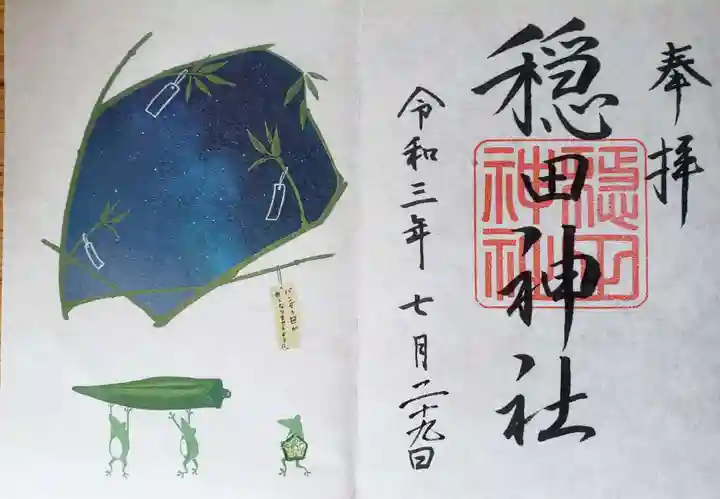 奉拝
穏田神社
穏田神社
令和三年七月二十九日